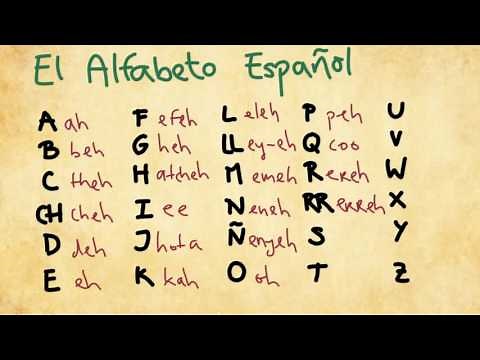 El Alfabeto Español
A ah F efeh L eleh P peh U
B beh G heh LL ey-eh Q coo V
C theh H hatcheh M emeh R ereh W
CH cheh I ee N eneh RR erreh X
D deh J hota Ñ enyeh S Y
E eh K kah O oh T Z